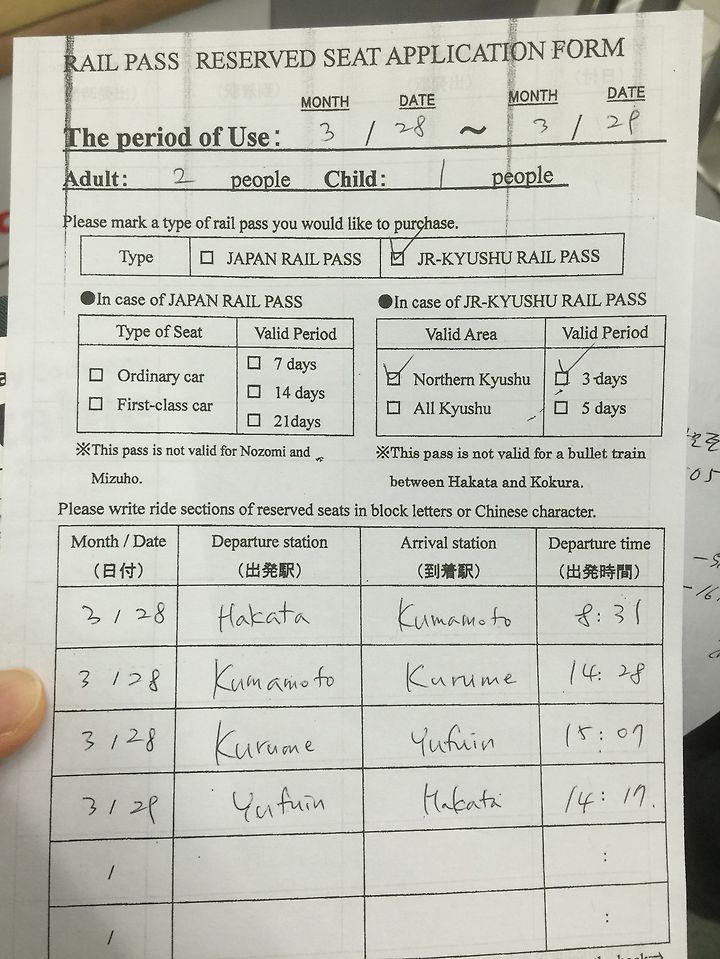 RAIL PASS RESERVED SEAT APPLICATION FORM
MONTH DATE MONTH DATE
The period of Use: 3 / 28 ~ 3 / 29
Adult: 2 people Child: 1 people
Please mark a type of rail pass you would like to purchase.
Type □ JAPAN RAIL PASS ☑ JR-KYUSHU RAIL PASS
●In case of JAPAN RAIL PASS ●In case of JR-KYUSHU RAIL PASS
Type of Seat Valid Period Valid Area Valid Period
□ Ordinary car □ 7 days ☑ Northern Kyushu ☑ 3 days
□ First-class car □ 14 days □ All Kyushu □ 5 days
□ 21days
※This pass is not valid for Nozomi and ※This pass is not valid for a bullet train
Mizuho. between Hakata and Kokura.
Please write ride sections of reserved seats in block letters or Chinese character.
Month / Date Departure station Arrival station Departure time
(日付) (出発駅) (到着駅) (出発時間)
3 / 28 Hakata Kumamoto 8:31
3 / 28 Kumamoto Kurume 14:28
3 / 28 Kurume Yufuin 15:07
3 / 29 Yufuin Hakata 14:17.
/ :
/ :